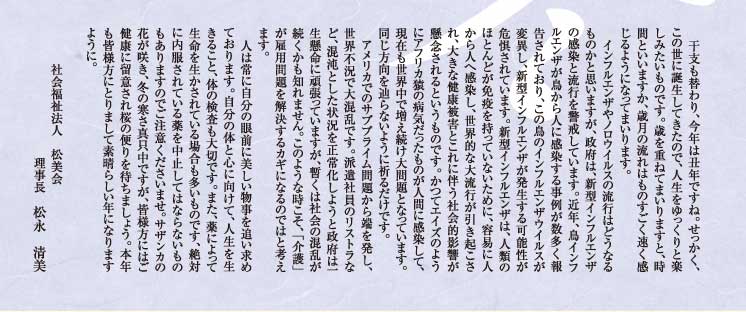 干支も替わり、今年は丑年ですね。せっかく、
この世に誕生してきたので、人生をゆっくりと楽
しみたいものです。歳を重ねてまいりますと、時
間といいますか、歳月の流れはものすごく速く感
じるようになってまいります。
　インフルエンザやノロウイルスの流行はどうなる
ものかと思いますが、政府は、新型インフルエンザ
の感染と流行を警戒しています。近年、鳥インフ
ルエンザが鳥から人に感染する事例が数多く報
告されており、この鳥のインフルエンザウイルスが
変異し、新型インフルエンザが発生する可能性が
危惧されています。新型インフルエンザは、人類の
ほとんどが免疫を持っていないために、容易に人
から人へ感染し、世界的な大流行が引き起こさ
れ、大きな健康被害とこれに伴う社会的影響が
懸念されるというものです。かつてエイズのよう
にアフリカ猿の病気だったものが人間に感染して、
現在も世界中で増え続け大問題となっています。
同じ方向を辿らないように祈るだけです。
　アメリカでのサブプライム問題から端を発し、
世界不況で大混乱です。派遣社員のリストラな
ど、混沌とした状況を正常化しようと政府は一
生懸命に頑張っていますが、暫くは社会の混乱が
続くかも知れません。このような時こそ、「介護」
が雇用問題を解決するカギになるのではと考え
ます。
　人は常に自分の眼前に美しい物事を追い求め
ております。自分の体と心に向けて、人生を生
きること、体の検査も大切です。また、薬によって
生命を生かされている場合も多いものです、絶対
に内服されている薬を中止してはならないもの
もありますのでご注意くださいませ。サザンカの
花が咲き、冬の寒さ真只中ですが、皆様方にはご
健康に留意され桜の便りを待ちましょう。本年
も皆様方にとりまして素晴らしい年になります
ように。
社会福祉法人　松美会
理事長　松永　清美